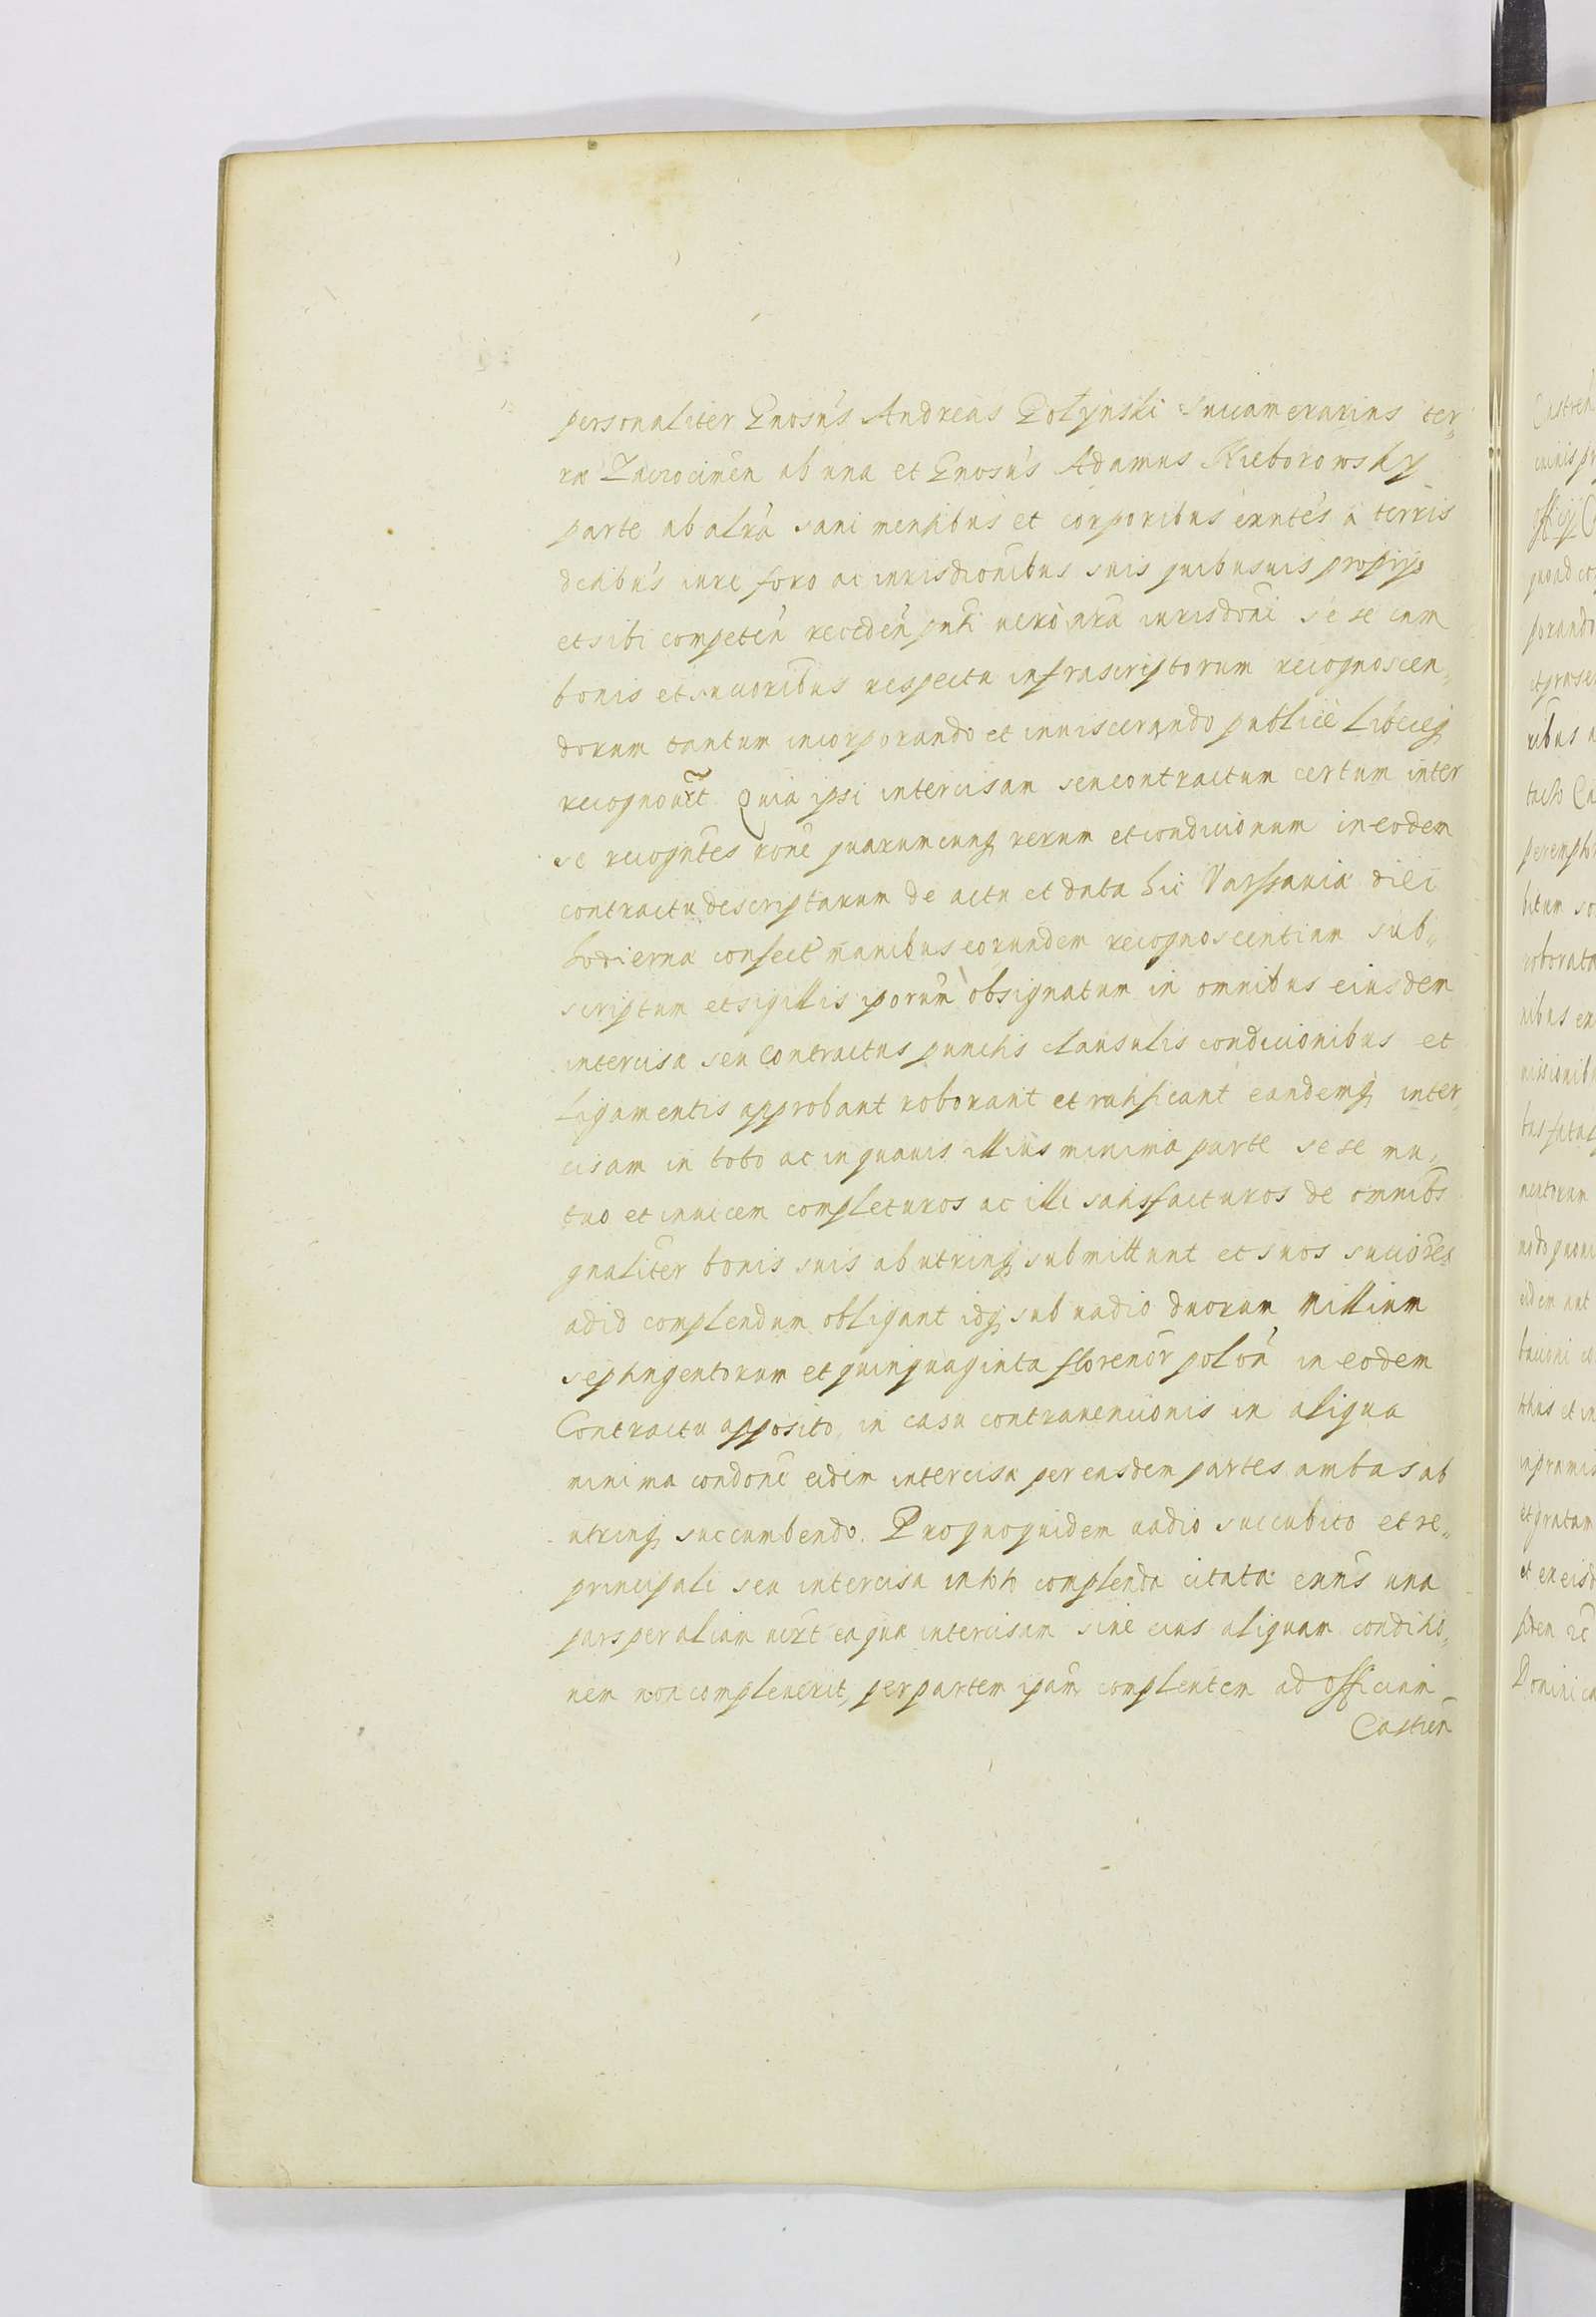 personaliter Gnosus Andreas Potynski Succamerarius ter„
ræ Zacrocimen ab una et Gnosus Adamus Kieborowsky
parte ab altra sani mentibus et corporibus exntes a terris
dctibus iure foro ac iurisdionibus suis quibusuis proprys
et sibi competen recedẽn pnti uero nra iurisdoni se se cum
bonis et succoribus respectu infrascriptorum recognoscen„
dorum tantum incorporando et inuiscerando publice Libereq
recognouert Quia ipsi intercisam seu contractum certum inter
se recogntes rone quarumcunq rerum et condicionum in eodem
contractu descriptarum de actu et data hic Varsaviæ diei
hodiernæ confect manibus eorundem recognoscentium sub„
scriptum et sigillis iporum obsignatum in omnibus eiusdem
intercisæ seu Contractus punctis clausulis condicionibus et
Ligamentis approbant roborant et ratificant eandemq inter„
cisam in toto ac in quauis illius minima parte se se mu„
tuo et inuicem completuros ac illi satisfacturos de omnibs
gnaliter bonis suis ab utrinq submittunt et suos succores
ad id complendum obligant idq sub uadio duorum Millium
septingentorum et quinquaginta florenor polon in eodem
Contractu apposito, in casu contrauencionis in aliqua
minima condone eidem intercisæ per easdem partes ambas ab
utrinq succumbendo. Pro quo quidem uadio succubito et re„
principali seu intercisa in toto complenda citata exns una
pars per aliam uert ea quæ intercisam siue eius aliquam conditio„
nem non compleuerit, per partem ipam complentem ad officium
Castren